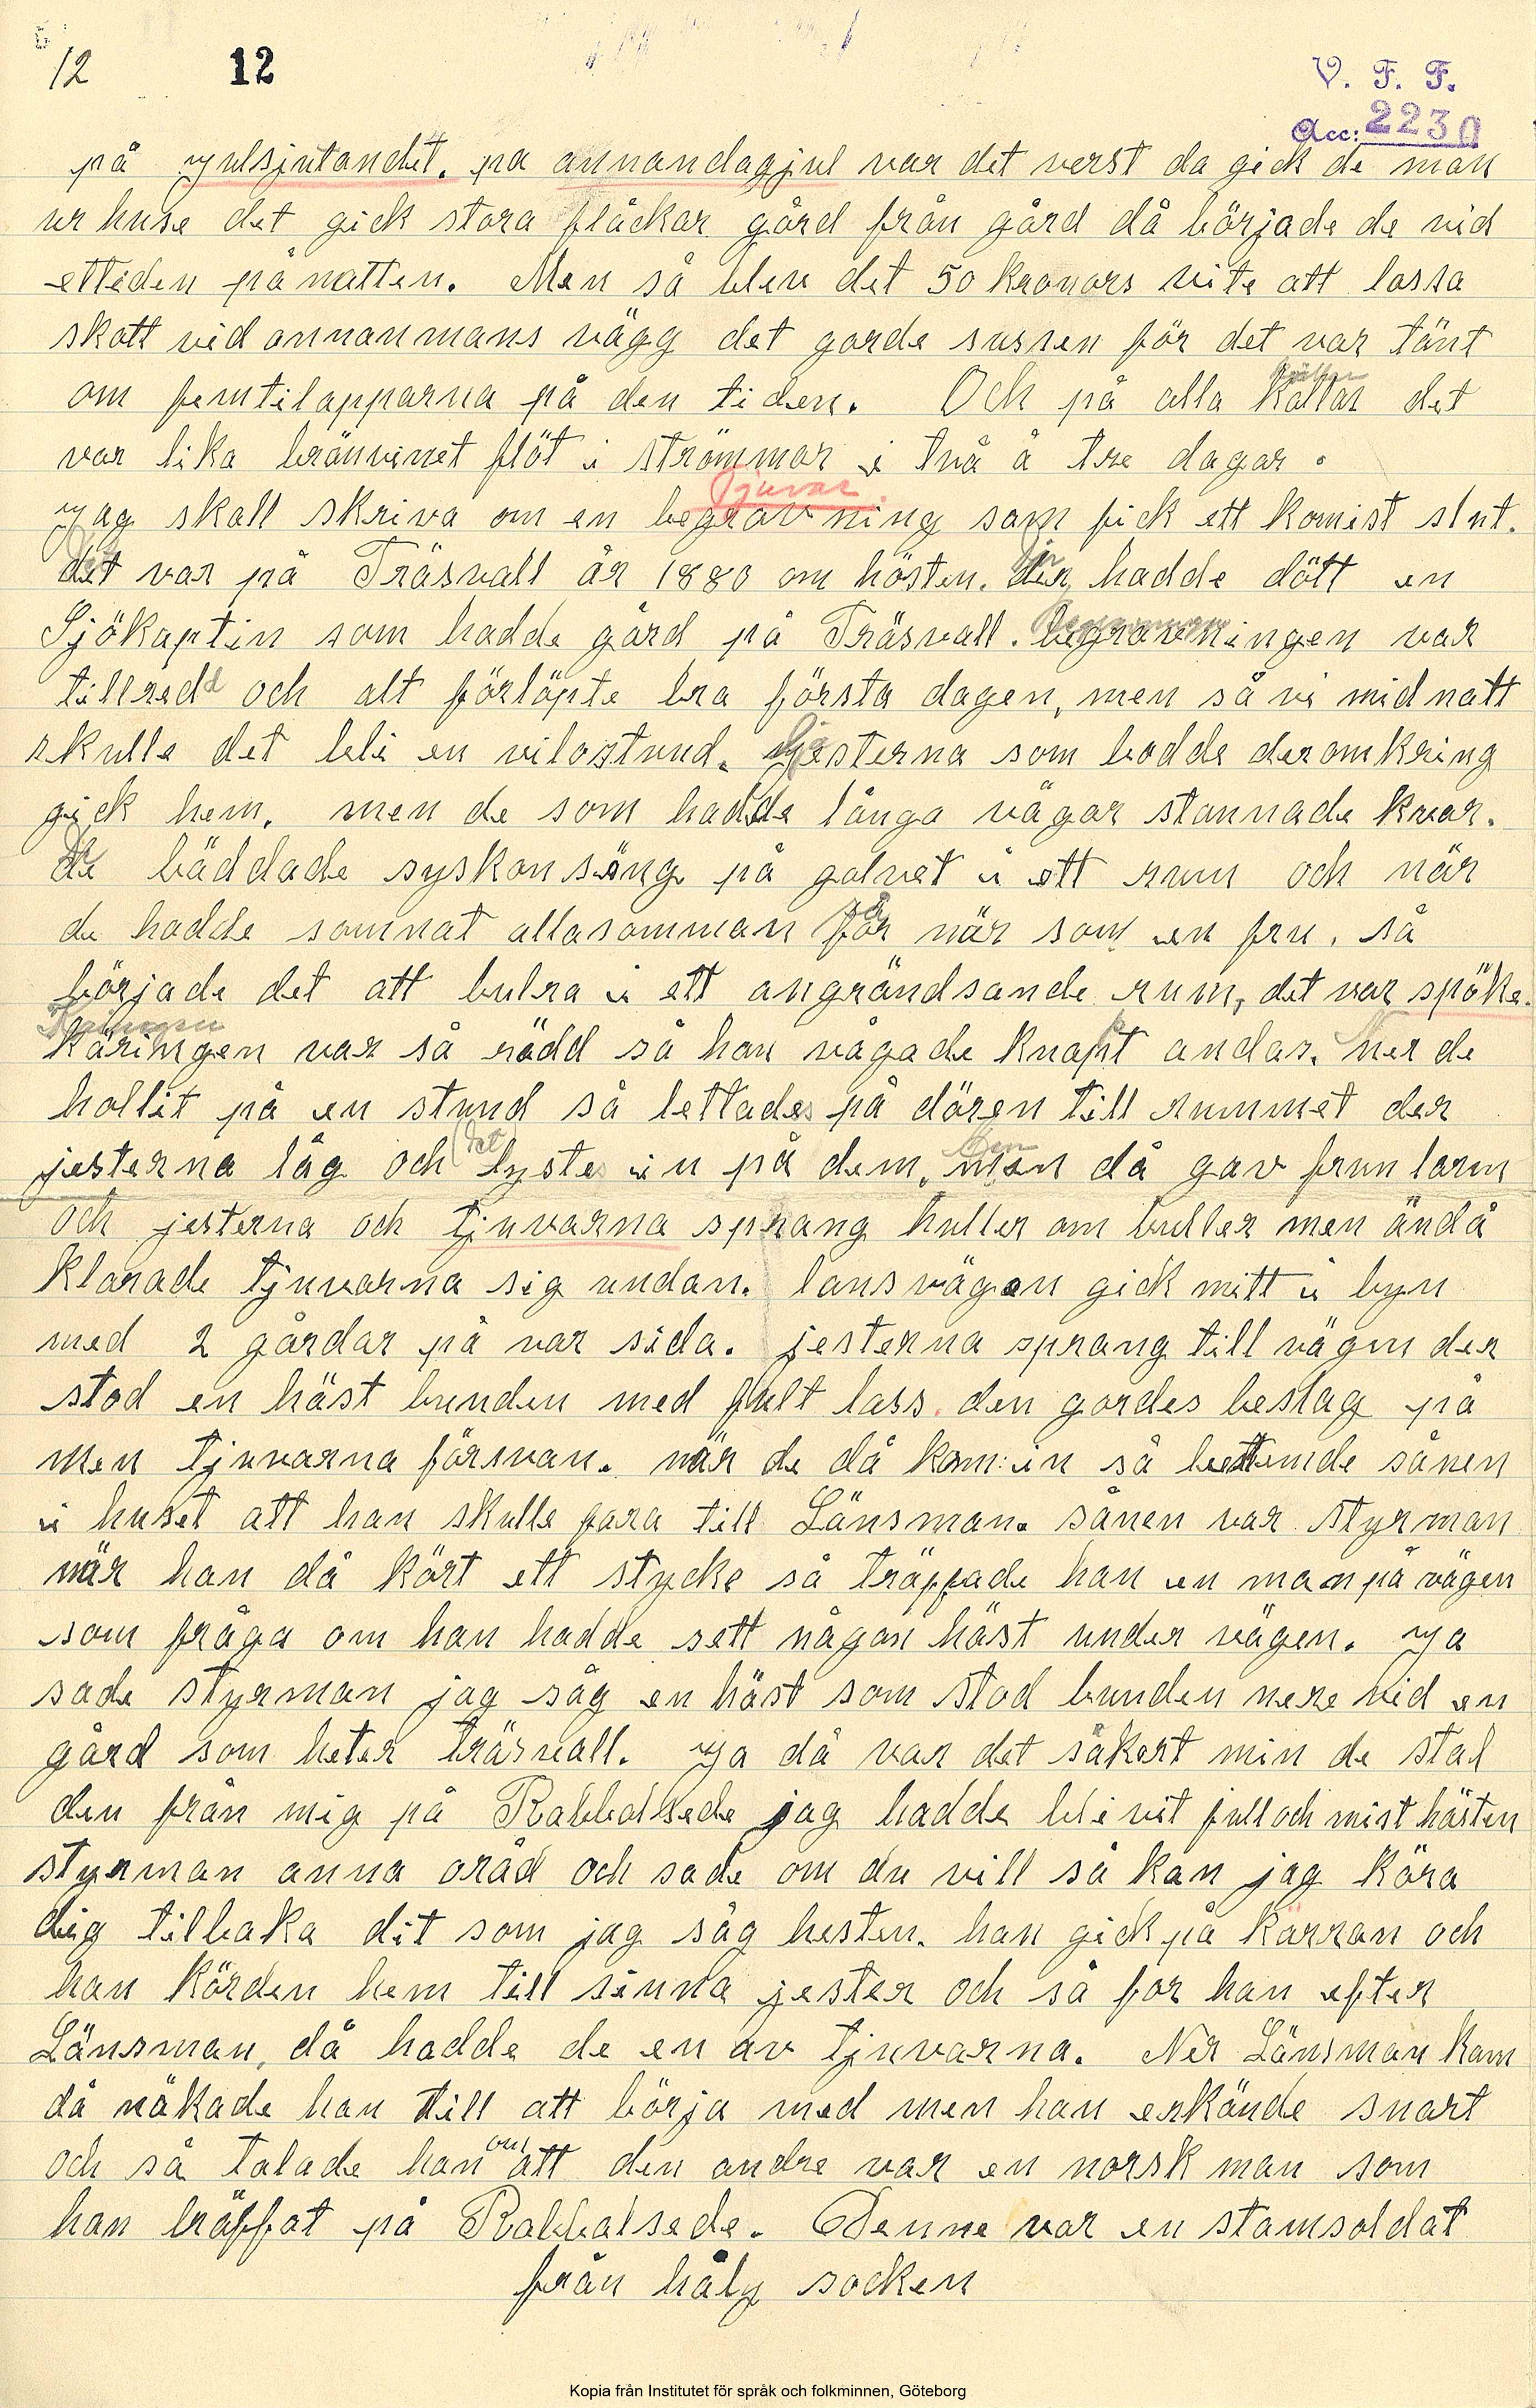 12 12
V. F. F.
Acc: 2230
på yulsjutandet. pa annandagjul var det verst da gick de man
ur huse det gick stora flåckar gård från gård då började de vid
ettiden på natten. Men så blev det 50 kronors vite att lossa
skott vid annanmans vägg det gorde sussen för det var tänt
om femtilapparna på den tiden. Och på alla kallas det
var lika bränvinet flöt i strömmar i två å tre dagar.
Tjuvar
yag skall skriva om en begravning som fick ett komist slut.
det var på Träsvall år 1880 om hösten. der hadde dött en
Sjökaptin som hadde gård på Träsvall. begravningen var
tillredd och alt förlöpte bra första dagen, men så vi midnatt
skulle det bli en vilostund. Gjesterna som bodde deromkring
gick hem, men de som hadde långa vägar stannade kvar.
de bäddade syskonsäng på golvet i ett rum och när
de hadde somnat allasamman får när som en fru, så
började det att bulra i ett angrändsande rum, det var spöke.
Käringen var så rädd så hon vågade knapt andas. ner de
hollit på en stund så lettades på dören till rummet der
det
jesterna låg och lyste in på dem, men då gav frun larm
och jesterna och tjuvarna sprang huller om buller men ändå
klarade tjuvarna sig undan. lansvägen gick mitt i byn
med 2 gårdar på var sida. jesterna sprang till vägen der
stod en häst bunden med fult lass. den gordes beslag på
men tjuvarna försvan. när de då kom in så bestemde sånen
i huset att han skulle fara till Länsman. sånen var styrman
när han då kört ett stycke så träffade han en man på vägen
som fråga om han hadde sett någon häst under vägen. ya
sade styrman jag såg en häst som stod bunden nere vid en
gård som heter träsvall. ya då var det säkert min de stal
den från mig på Rabbalsede jag hadde blivit full och mist hästen
styrman anna oråd och sade om du vill så kan jag köra
dig tilbaka dit som jag såg hesten. han gick på kärran och
han körden hem till sinna jester och så for han efter
Länsman, då hadde de en av tjuvarna. Ner Länsman kom
då näkade han till att börja med men han erkände snart
om
och så talade han att den andre var en norsk man som
han träffat på Rabbalsede. Denne var en stamsoldat
från håby socken
Kopia från Institutet för språk och folkminnen, Göteborg